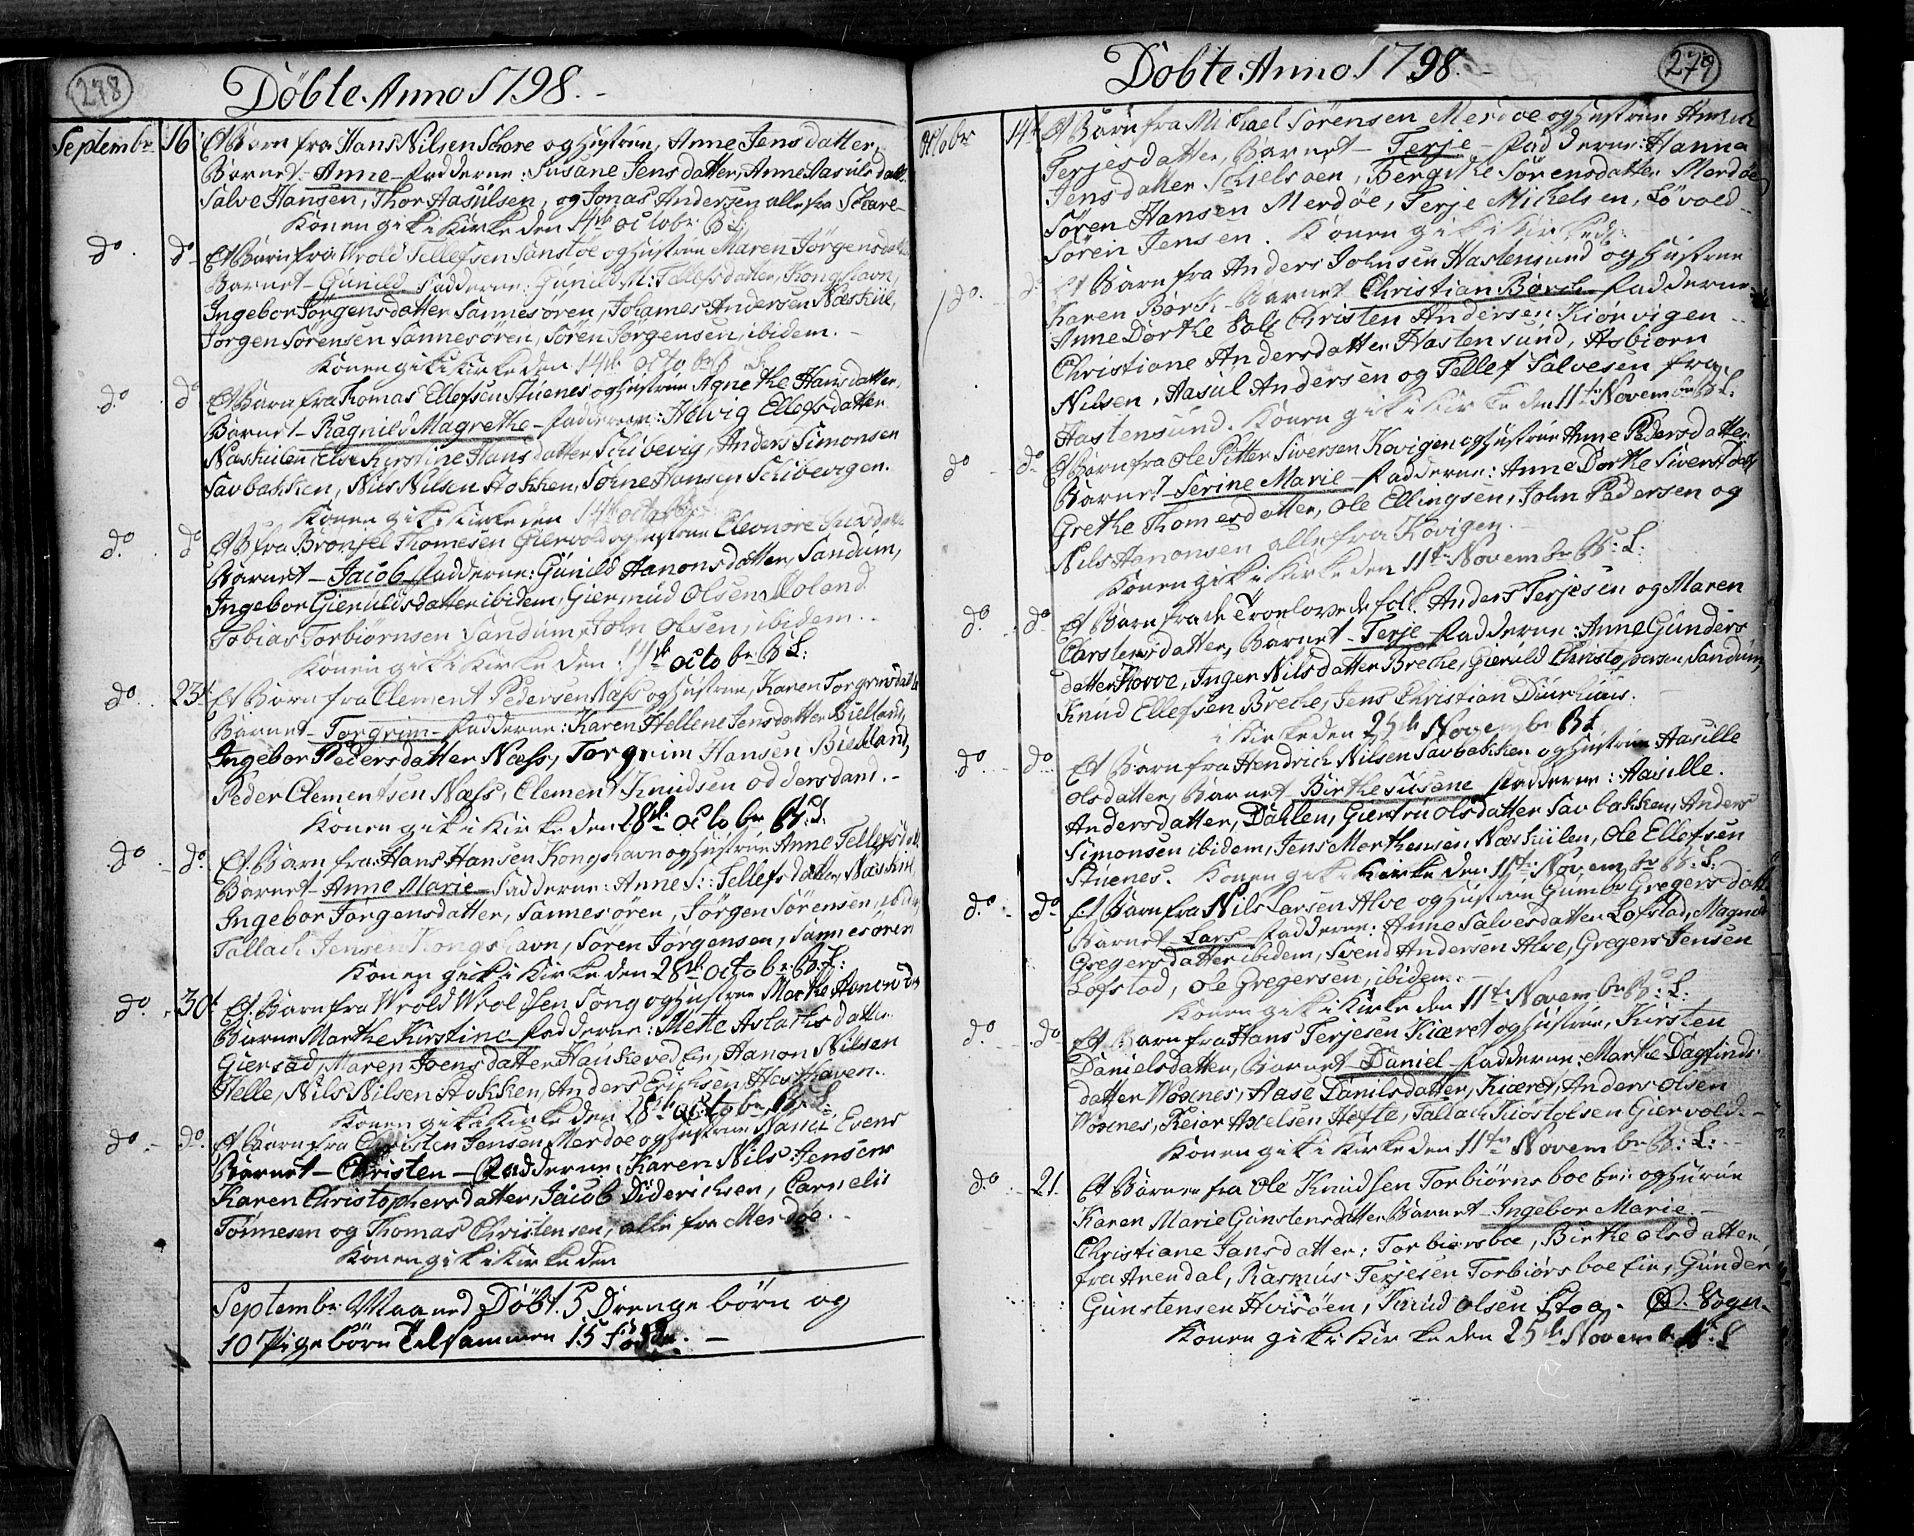 278
Döbte Anno 1798.
Septembr 16 Et Barn fra Hans Nilsen Schare og hustrue, Anne Jensdatter,
Barnet - Anne - fadderne: Susane Jensdatter, Anne Aasulsdatt:
Salve Hansen, Thor Aasulsen, og Jonas Andersen alle fra Schare -
Konen gik i Kirke den 14de octobr B: L:
do do Et Barn fra Wrold Tellefsen Sanstöe og hustrue Maren Jörgensdatter
Barnet - Gunild fadderne: Gunild M: Tellefsdatter, Kongshavn,
Ingebor Jörgensdatter Sannesören, Johannes Andersen Næskiil,
Jörgen Sörensen Sannesören, Sören Jörgensen, ibidem. -
Konen gik i Kirke den 14de octobr B: L
do do Et Barn fra Thomas Ellefsen Stuenes og hustrue Agnethe Hansdatter,
Barnet - Ragnild Magrethe - fadderne: Helvig Ellefsdatter
Næskiilen, Else Kirstine Hansdatter Schibevig, Anders Simonsen
Savbakken, Nils Nilsen Stokken, Sohne Hansen Schibevigen.
Konen gik i Kirke den 14de octobr
do do Et B: fra Bronsel Thomesen Giervold og hustrue Eleonore
Barnet - Jacob fadderne: Gunild Hanonsdatter, Sandum,
Ingebor Gieruldsdatter ibidem, Giermud Olsen Noland
Tobias Torbiörnsen Sandum, John Olsen, ibidem. -
Konen gik i Kirke den octobr B L:
do 23de Et Barn fra Clement Pedersen Næss og hustrue, Karen Torgrimsdatt
Barnet - Torgrim - fadderne: Karen Hellene Jensdatter Bielland,
Ingebor Pedersdatter Næss, Torgrim Hansen Bielland,
Peder Clementsen Næss, Clement Knudsen oddersdand. -
Konen gik i Kirke den 28de octobr B: L:
do do Et Barn fra Hans Hansen Kongshavn og hustrue Anne Tellefsdatt
Barnet - Anne Marie - fadderne: Anne S: Tellefsdatter Næskiil,
Ingebor Jörgensdatter, Sannesören, Jörgen Sörensen, ibidem,
Tallach Jensen Kongshavn, Sören Jörgensen, Sannesören
Konen gik i Kirke den 28de octobr B: L:
do 30t Et Barn fra Wrold Wroldsen Song og hustrue Marthe Hanonsdr
Barne Marthe Kirstine fadderne: Mette Aslachsdatter
Giersad, Maren Joensdatter Haukeved Eie, Hanon Nilsen
Helle, Nils Nilsen Stokken, Anders Erichsen, Hasthaven.
Konen gik i Kirke den 28de octobr B: L
do do Et Barn fra Christen Jensen Merdöe og hustrue Evens
Barnet - Christen - fadderne: Karen Nils Jensens
Karen Christophersdatter, Jacob Diderichsen, Cornelis
Tönnesen og Thomas Christensen, alle fra Merdöe -
Konen gik i Kirke den
Septembr Maaned Döbt 5 Drenge börn og
10 Pige börn Tilsammen 15 födde. -
279
Döbte Anno 1798. -
Octobr 14de Et Barn fra Michael Sörensen Merdöe og hustrue
Terjesdatter, Barnet - Terje - fadderne: Hanna
Jensdatter Schielsöen, Bergithe Sörensdatter Merdöe
Sören Hansen Merdöe, Terje Michelsen, Lövold -
Sören Jensen. Konen gik i Kirke d:
do. d Et Barn fra Anders Johnsen Hastensund og hustrue
Karen Börch - Barnet Christian Börch - fadderne
Anne Dorthe Christen Andersen Kiörvigen -
Christiane Andersdatter Hastensund, Asbiörn
Nilsen, Aasul Andersen og Tellef Salvesen fra
Hastensund. Konen gik i Kirke den 11te Novembr B: L:
do do Et Barn fra Ole Pitter Siversen Kovigen og hustrue Anne Pedersdatter
Barnet - Serine Marie - fadderne: Anne Dorthe Siversdatt
Grethe Thomesdatter, Ole Ellingsen, John Pedersen og
Nils Hanonsen alle fra Kovigen -
Konen gik i Kirke den 11te Novembr B: L:
do do Et Barn fra de Troelovede folk Anders Terjesen og Maren
Carstensdatter, Barnet - Terje - fadderne: Anne Gunders
datter Torve, Inger Nilsdatter Breke, Gieruld Christophersen, Sandum,
Knud Ellefsen Breke, Jens Christian Duurhuus.
i Kirke den 25de Novembr B L
do do Et Barn fra Hendrich Nilsen Savbakken og hustrue Aasille
olsdatter, Barnet Birthe Susane fadderne: Aasille.
Andersdatter, Dahlen, Giertru Olsdatter Savbakken, Anders
Simonsen ibidem, Jens Morthensen, Næskiilen, Ole Ellefsen
Stuenes. Konen gik i Kirke den 11te Novembr B: L:
do do Et Barn fra Nils Larsen Alve og hustrue Gumbr Gregersdatt
Barnet - Lars - fadderne: Anne Salvesdatter Lofstad, Magnild
Gregersdatter ibidem, Svend Andersen Alve, Gregers Jensen
Lofstad, Ole Gregersen, ibidem. -
Konen gik i Kirke den 11te Novembr B: L:
do do Et Barn fra Hans Terjesen Kiæret og hustrue, Kirsten
Danielsdatter, Barnet - Daniel - fadderne: Marthe Dagfinds
datter Woxnes, Aase Danilsdatter, Kiæret, Anders Olsen
Woxnes, Reiar Axelsen Hefte, Tallach Kiöstolsen Giervold. -
Konen gik i Kirke den 11te Novembr B: L: -
do 21. Et Barn fra Ole Knudsen Torbiörnsboe Eie: og hustrue
Karen Marie Gunstensdatter Barnet - Ingebor Marie. -
Christiane Jansdatter, Torbiörsboe, Birthe Olsdatter.
fra Arendal, Rasmus Terjesen Torbiörsboe Eie, Gunder
Gunstensen Hvisöen, Knud Olsen Stoa.
Konen gik i Kirke den 25de Novembr B: L